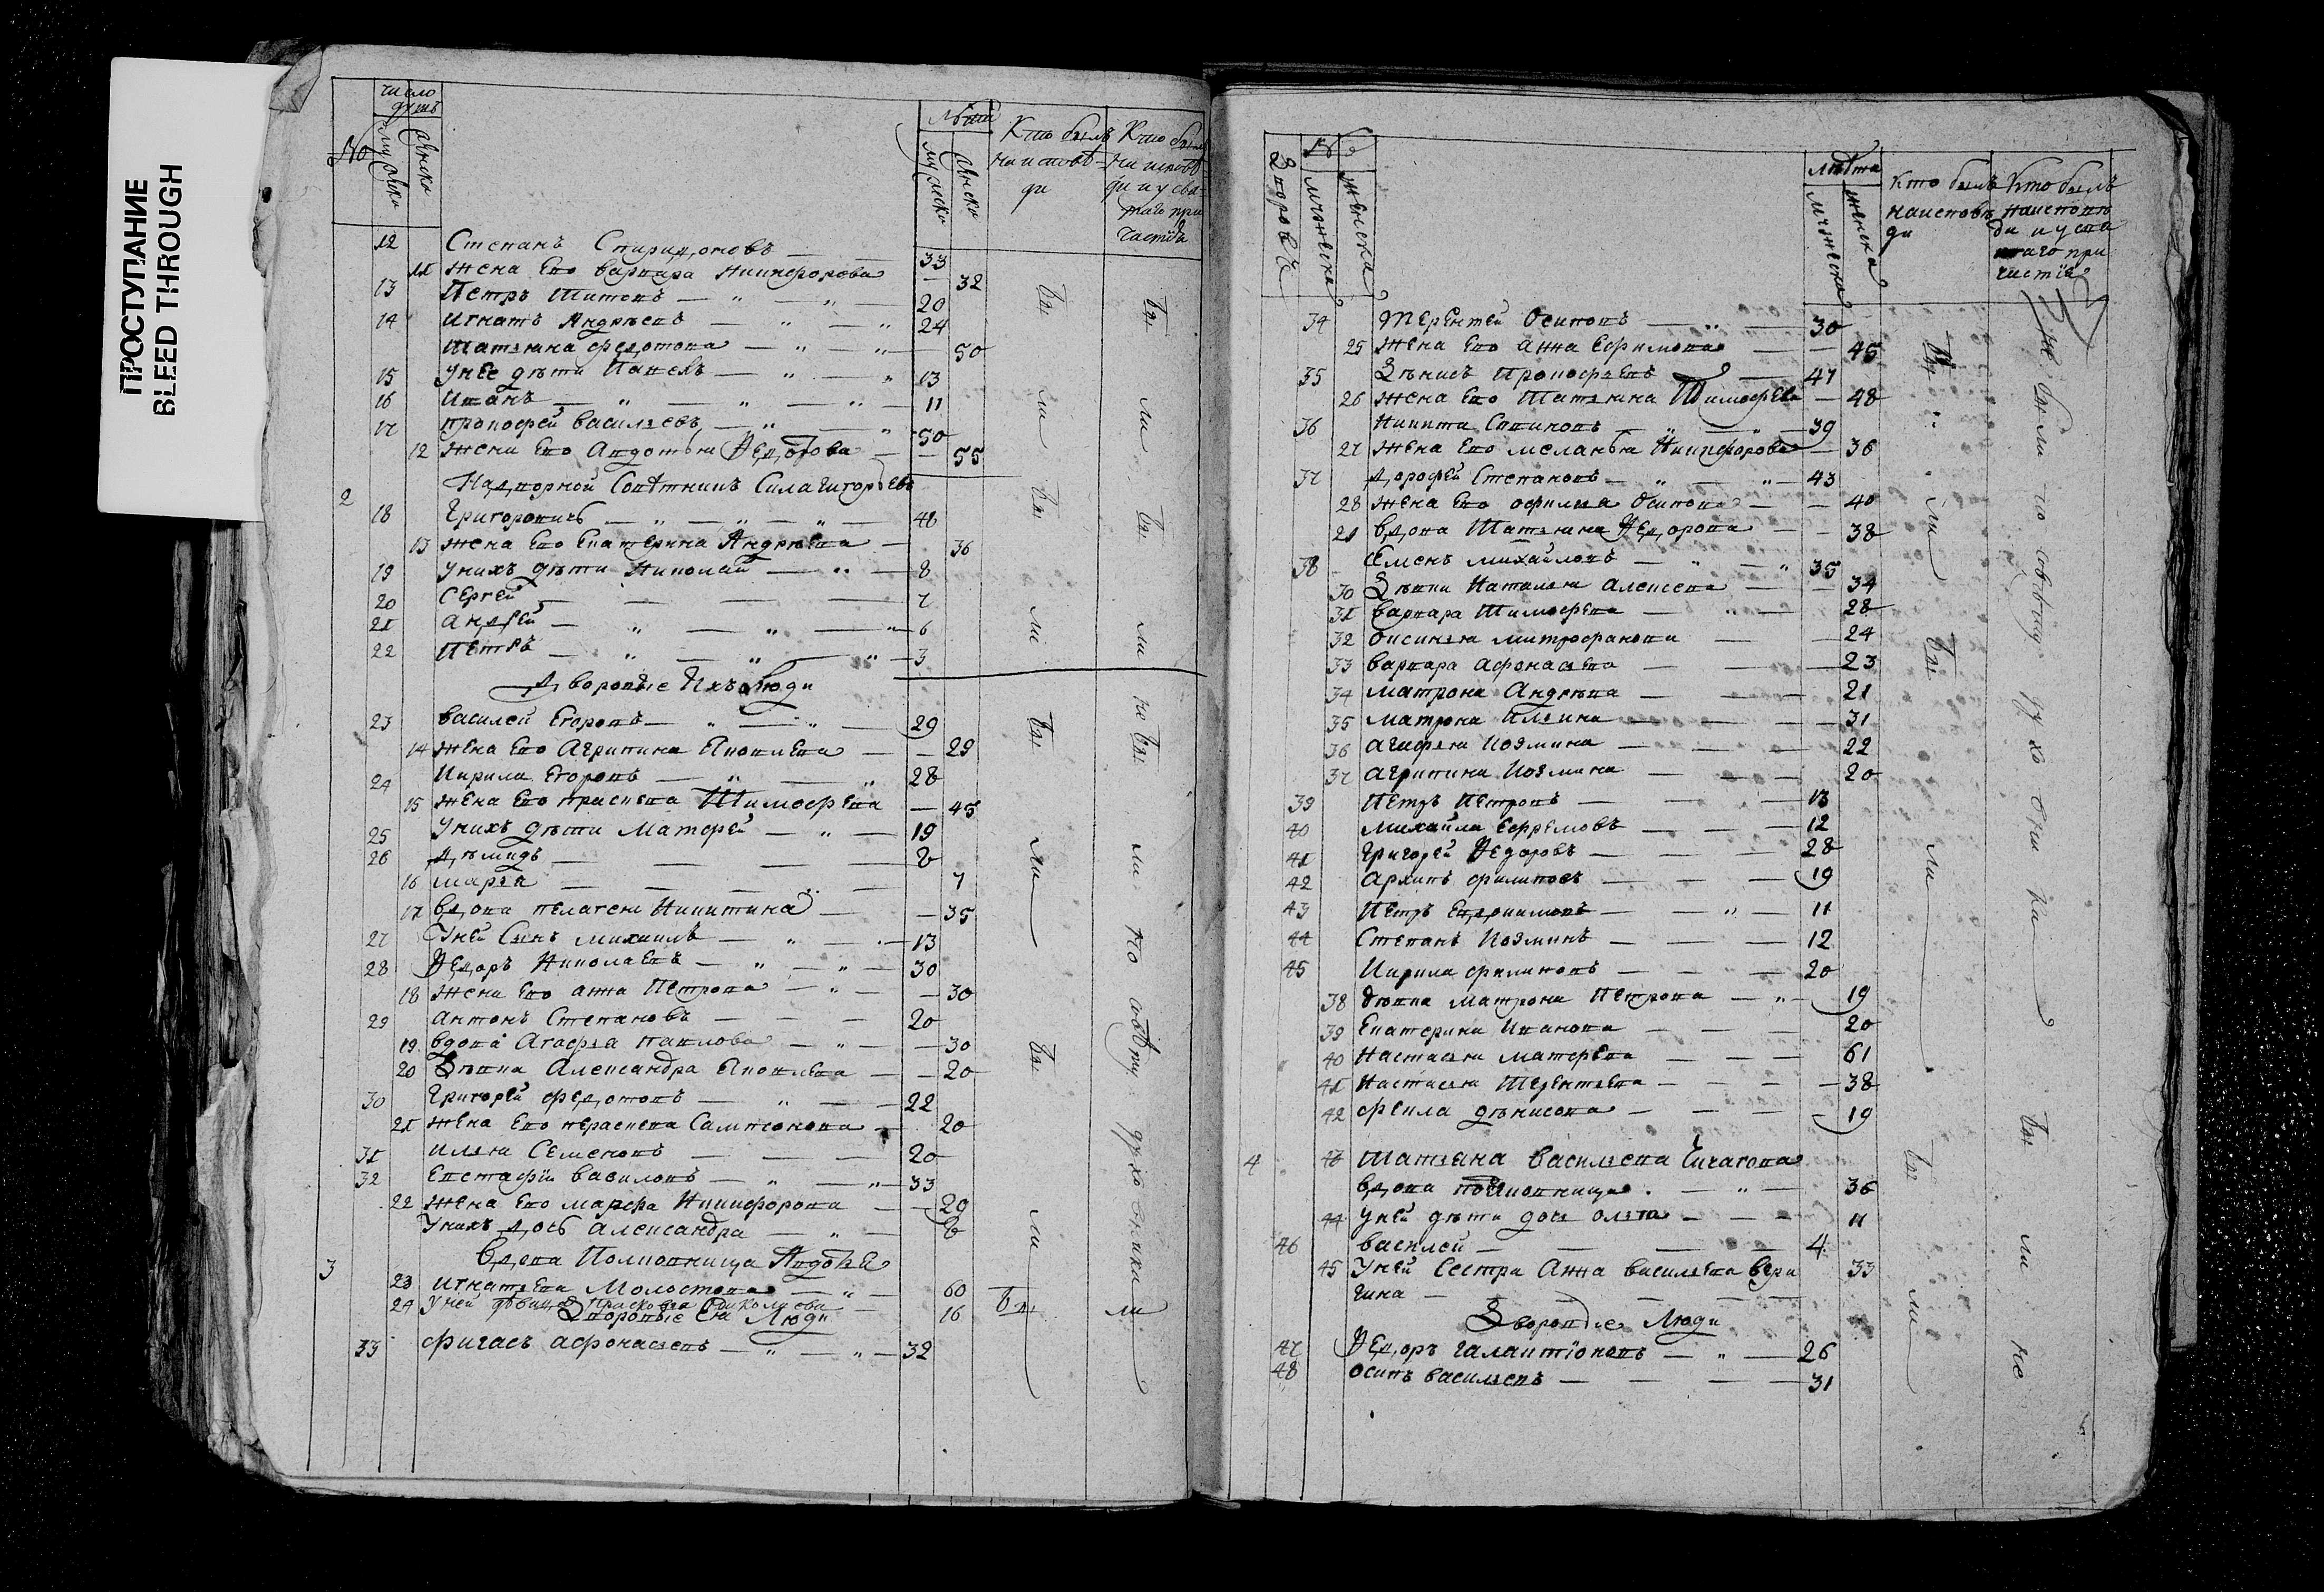 ПРОСТУПАНИЕ
BLEED THROUGH
число душъ
№ мужска женска
Лѣта
мужска женска
Кто былъ на исповѣди
Кто былъ на исповѣди и у святаго причастїя
12 Степанъ Спиридоновъ — 33
11 жена Ево варвара Никифорова — 32
13 Петръ Титовъ — „ — „ 20
14 Игнатъ Андрѣевъ — „ — „ 24
Татьяна федотова — „ „ — 50
15 У нее дѣти Павелъ — „ — „ 13
16 Иванъ — „ — „ — „ — 11
17 прокофей васильевъ — „ — „ 50
12 жена Ево Авдотья Федотова — 55
2 Надворной Совѣтникъ Сила Григорьевъ
18 Григоровичь — „ — „ — „ — 48
13 жена Ево Екатерина Андрѣева — 36
19 У нихъ дѣти Николай — „ — 8
20 Сергей — — — — 7
21 Андрей — „ — „ — „ 6
22 Петръ — „ — „ — „ 3
Дворовые Ихъ Люди
23 василей Егоровъ — „ — „ — 29
14 жена Ево Агрипина Яковлева — 29
24 Кирила Егоровъ — „ — „ 28
15 жена Ево Прасковья Тимофѣева — 45
25 У нихъ дѣти Матфей — „ — 19
26 Дѣмидъ — — — — 8
16 марья — — — „ — 7
17 вдова пелагея Никитина — 35
27 У ней Сынъ михаилъ — „ — 13
28 Федоръ Николаевъ — „ — „ — 30
18 жена Ево анна Петрова — „ — 30
29 Антонъ Степановъ — — — 20
19 вдова Агафья павлова — „ — 30
20 Дѣвка Александра Яковлева — 20
30 Григорей федотовъ — „ — 22
21 жена Ево Параскева Сампсонова — 20
31 илья Семеновъ — — — 20
32 Евстафїй вавиловъ — „ — „ 33
22 жена Ево марфа Никифорова — 29
У нихъ дочь Александра — „ — 8
3 Вдова Полковница Авдотья
23 игнатьева Молостова — „ — 60
24 У ней дѣвица Прасковья Николаева 16
Дворовые Ея Люди
33 афонасьевъ — „ — „ — 32
были
были
были
были
не были по совѣту духовника
были
Дворовѣ
№
мужеска женска
Лѣта
мужеска женска
Кто былъ на исповѣди
Кто былъ на исповѣди и у святаго причастїя
34 Терентей Осиповъ — „ — 30
25 жена Ево анна Ефимова — 45
35 Дѣнисъ Прокофьевъ — 47
26 жена Ево Татьяна Тимофѣева — 48
36 Никита Савиновъ — „ — „ — 39
27 жена Ево меланья Никифорова — 36
37 Дорофей Степановъ — „ — „ — 43
28 жена Ево офимья Осипова — 40
29 вдова Татьяна Федорова — 38
38 Семенъ михайловъ — „ — „ 35
30 Дѣвки Наталья Алексеева — 34
31 варвара Тимофѣева — „ — 28
32 Оксинья митрофанова — 24
33 варвара Афонасьева — — 23
34 матрона Андрѣева — — 21
35 матрона Ильина — — 31
36 агафья Козмина — — 22
37 агрипина Козмина — — 20
39 Петръ Петровъ — — — 13
40 михайла Ефремовъ — — — 12
41 Григорей Федоровъ — — — 28
42 архипъ филиповъ — — — 19
43 Петръ Евдокимовъ — — „ — 11
44 Степанъ Козминъ — — — 12
45 Кирила филиповъ — — — 20
38 дѣвка матрона Петрова — „ — 19
39 Екатерина Иванова — — 20
40 Настасья матфѣева — — — 61
41 Настасья Терентьева — — — 38
42 фекла дѣнисова — — — 19
4 43 Татьяна васильева Чичагова
вдова полковница — „ — 36
44 У ней дѣти дочь ольга — — — 11
46 василей — — — — 4
45 У ней Сестра Анна васильева Вери 33
гина — — — —
Дворовые Люди
47 Федоръ галактїоновъ — „ — 26
48 осипъ васильевъ — — — — 31
были
были
не были по совѣту духовника
были
были не